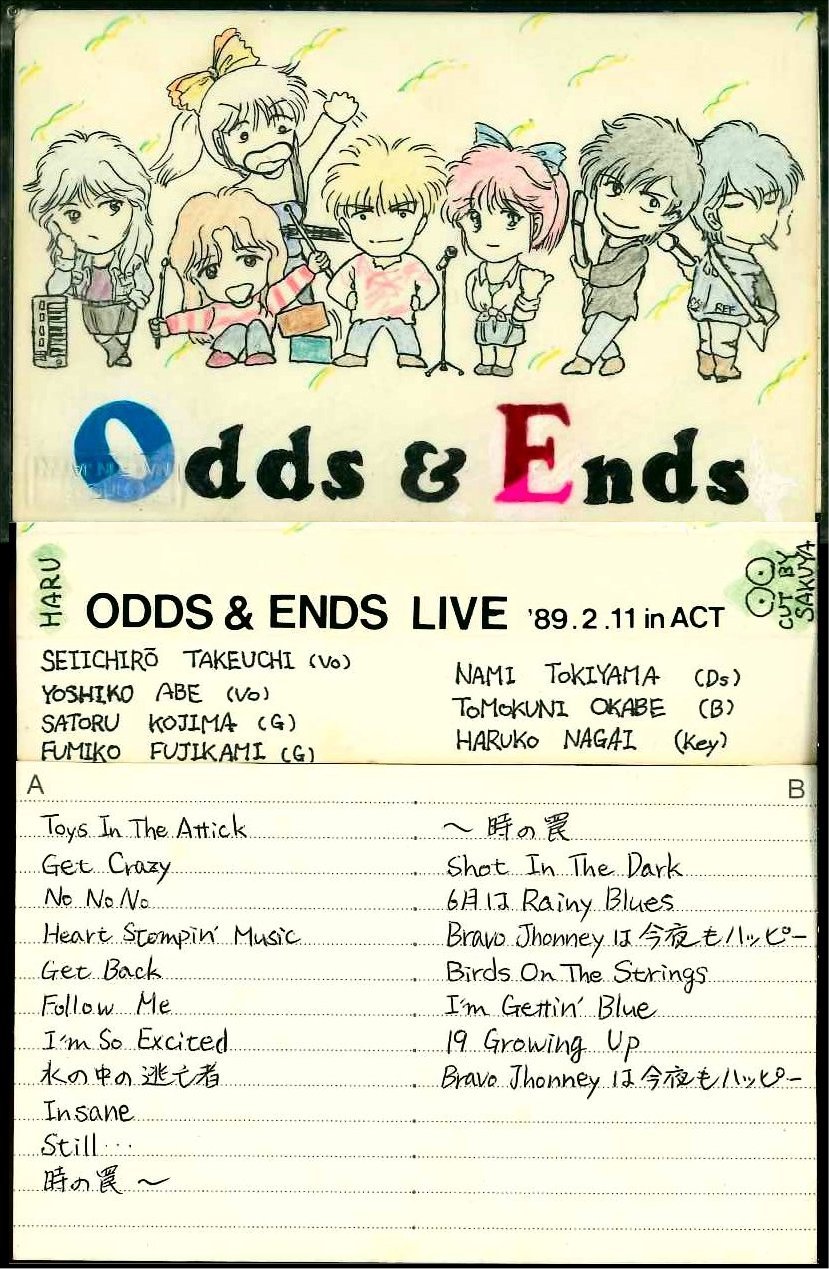 REF
Odds & Ends
HARU
CUT BY
SAKUYA
ODDS & ENDS LIVE '89.2.11 in ACT
SEIICHIRŌ TAKEUCHI (Vo)
YOSHIKO ABE (Vo)
SATORU KOJIMA (G)
FUMIKO FUJIKAMI (G)
NAMI TOKIYAMA (Ds)
TOMOKUNI OKABE (B)
HARUKO NAGAI (Key)
A
Toys In The Attick
Get Crazy
No No No
Heart Stompin' Music
Get Back
Follow Me
I'm So Excited
水の中の逃亡者
Insane
Still…
時の罠 〜
B
〜 時の罠
Shot In The Dark
6月は Rainy Blues
Bravo Jhonney は今夜もハッピー
Birds On The Strings
I'm Gettin' Blue
19 Growing Up
Bravo Jhonney は今夜もハッピー